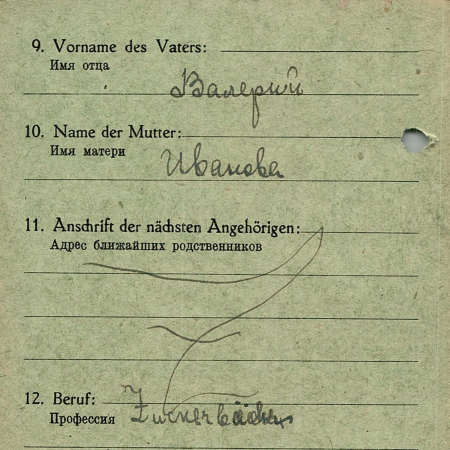 9. Vorname des Vaters:
Имя отца
Валерий
10. Name der Mutter:
Имя матери
Иванова
11. Anschrift der nächsten Angehörigen:
Адрес ближайших родственников
12. Beruf:
Профессия